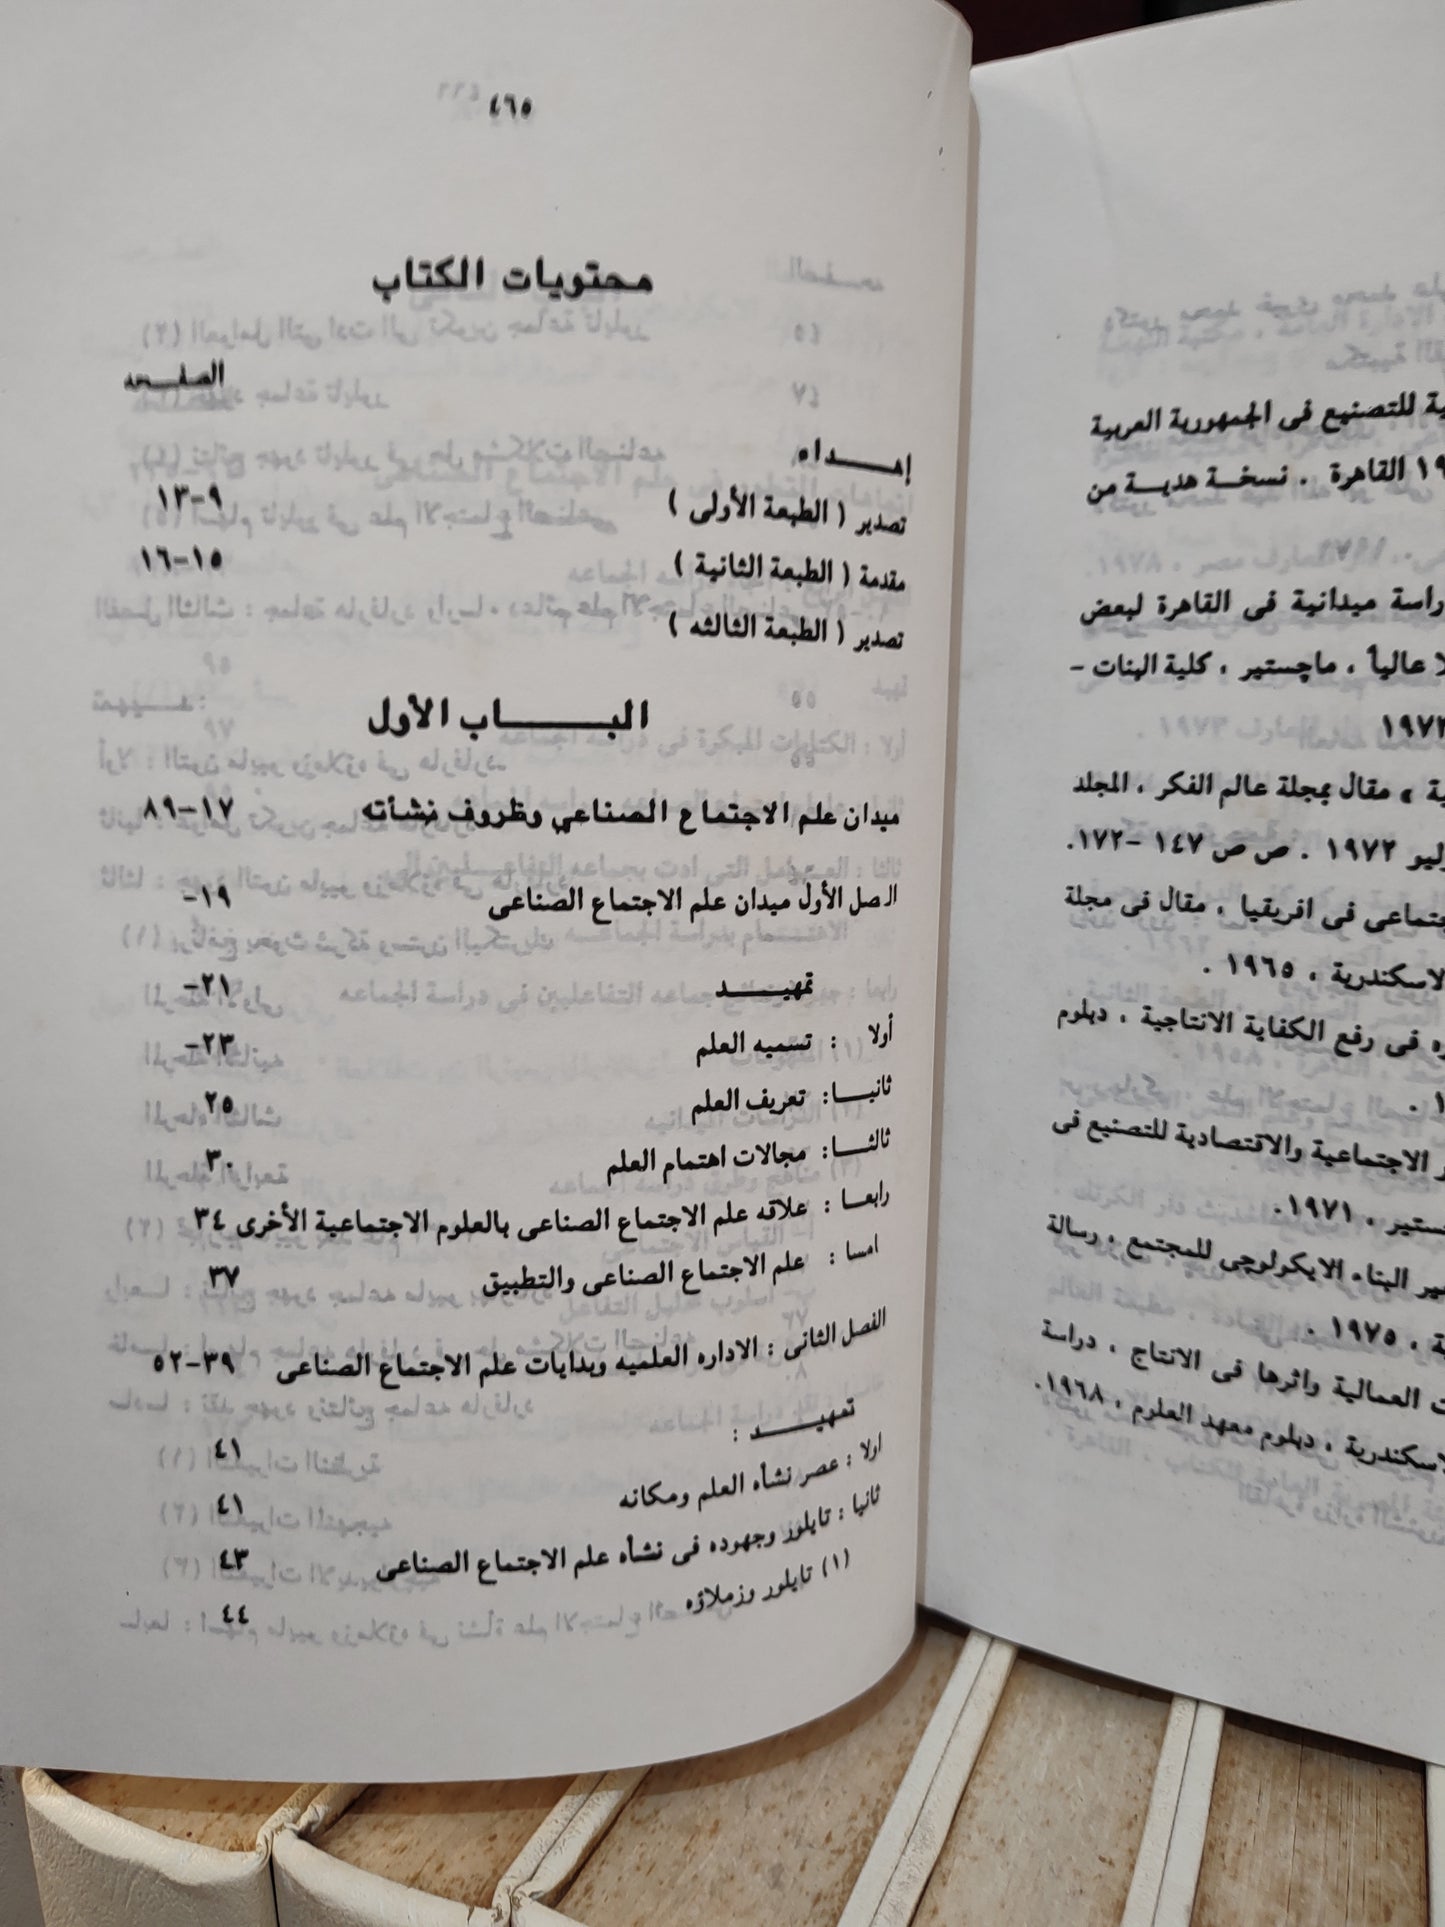 ٤٦٥
محتويات الكتاب
الصفـــحه
إهـــــداه
تصدير ( الطبعة الأولى ) ٩-١٣
مقدمة ( الطبعة الثانية ) ١٥-١٦
تصدير ( الطبعة الثالثه )
البـــــــاب الأول
ميدان علم الاجتماع الصناعي وظروف نشأته ١٧-٨٩
الـصل الأول ميدان علم الاجتماع الصناعى ١٩-
تمهيـــــــد ٢١-
أولا : تسميه العلم ٢٣-
ثانيـــا: تعريف العلم ٢٥
ثالثـــا: مجالات اهتمام العلم ٣٠
رابعــا : علاقه علم الاجتماع الصناعى بالعلوم الاجتماعية الأخرى ٣٤
امسا : علم الاجتماع الصناعى والتطبيق ٣٧
الفصل الثانى : الاداره العلميه وبدايات علم الاجتماع الصناعى ٣٩-٥٢
تمهيـــــد : ٤١
اولا : عصر نشأه العلم ومكانه ٤١
ثانيا : تايلور وجهوده فى نشأه علم الاجتماع الصناعى ٤٣
(١) تايلور وزملاؤه ٤٤
ية للتصنيع فى الجمهورية العربية
١٩ القاهرة . نسخــة هديــة من
راسة ميدانية فى القاهرة لبعض
لا عالياً ، ماچستير ، كلية البنات –
١٩٧٣
ية » مقال بمجلة عالم الفكر ، المجلد
ليو ١٩٧٢ . ص ص ١٤٧ –١٧٢.
جتماعى فى افريقيا ، مقال فى مجلة
لاسكندرية ، ١٩٦٥ .
ره فى رفع الكفاية الانتاجية ، دبلوم
١ .
ر الاجتماعية والاقتصادية للتصنيع فى
ستير ، ١٩٧١.
ير البناء الايكولوجى للمجتمع ، رسالة
ية ، ١٩٧٥ .
ت العمالية واثرها فى الانتاج ، دراسة
لاسكندرية ، دبلوم معهد العلوم ، ١٩٦٨.